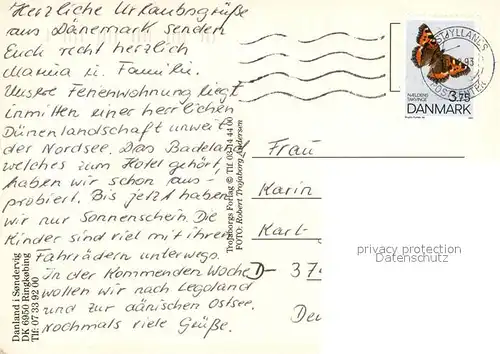 Herzliche Urlaubsgrüße
aus Dänemark senden
Euch recht herzlich
Marina u. Familie.
Unsere Ferienwohnung liegt
inmitten einer herrlichen
Dünenlandschaft unweit
der Nordsee. Das Badeland
welches zum Hotel gehört,
haben wir schon aus-
probiert. Bis jetzt haben
wir nur Sonnenschein. Die
Kinder sind viel mit ihren
Fahrrädern unterwegs.
In der kommenden Woche
wollen wir nach Legoland
und zur dänischen Ostsee.
Nochmals viele Grüße.
Danland i Søndervig
DK 6950 Ringkøbing
Tlf 07 33 92 00
Tropborgs Forlag © Tlf. 03 14 44 00
FOTO: Robert Trojaborg Andersen
ØSTJYLLANDS
93
POSTCENTER
NÆLDENS
TAKVINGE
3.75
DANMARK
Frau
Karin
Karl-
D- 374
privacy protection
Datenschutz